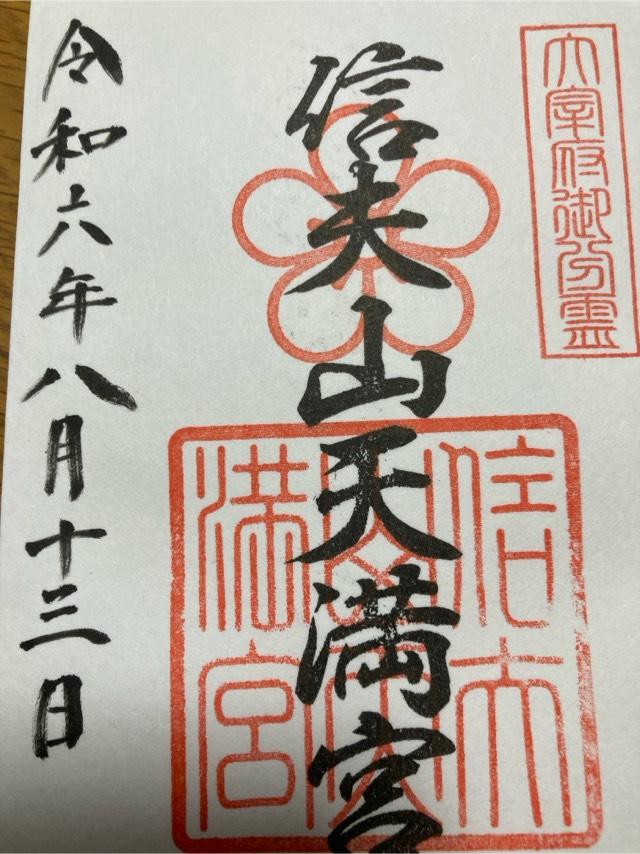 太宰府御分霊
信夫山天満宮
信夫山天満宮
令和六年八月十三日